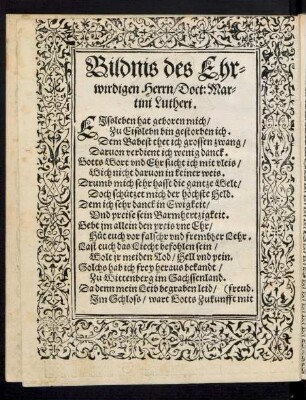 Bildnis des Ehr-
wirdigen Herrn/Doct: Mar-
tini Lutheri.
EIsleben hat geboren mich/
Zu Eisleben bin gestorben ich.
Dem Babest thet ich grossen zwang/
Daruon verdient ich wenig danck.
Gotts Wort vnd Ehr sucht ich mit vleis/
Wich nicht daruon in keiner weis.
Drumb mich sehr hasst die gantze Welt/
Doch schützet mich der höchste Held.
Dem ich sehr danck in Ewigkeit/
Vnd preise sein Barmhertzigkeit.
Gebt jm allein den preis vnd Ehr/
Hüt euch vor falscher vnd frembder Lehr.
Last euch das Liecht befohlen sein/
Wolt jr meiden Tod/Hell vnd pein.
Solchs hab ich frey heraus bekandt/
Zu Wittenberg im Sachssenland.
Da denn mein Leib begraben leid/ (freud.
Im Schloss/wart Gotts Zukunfft mit